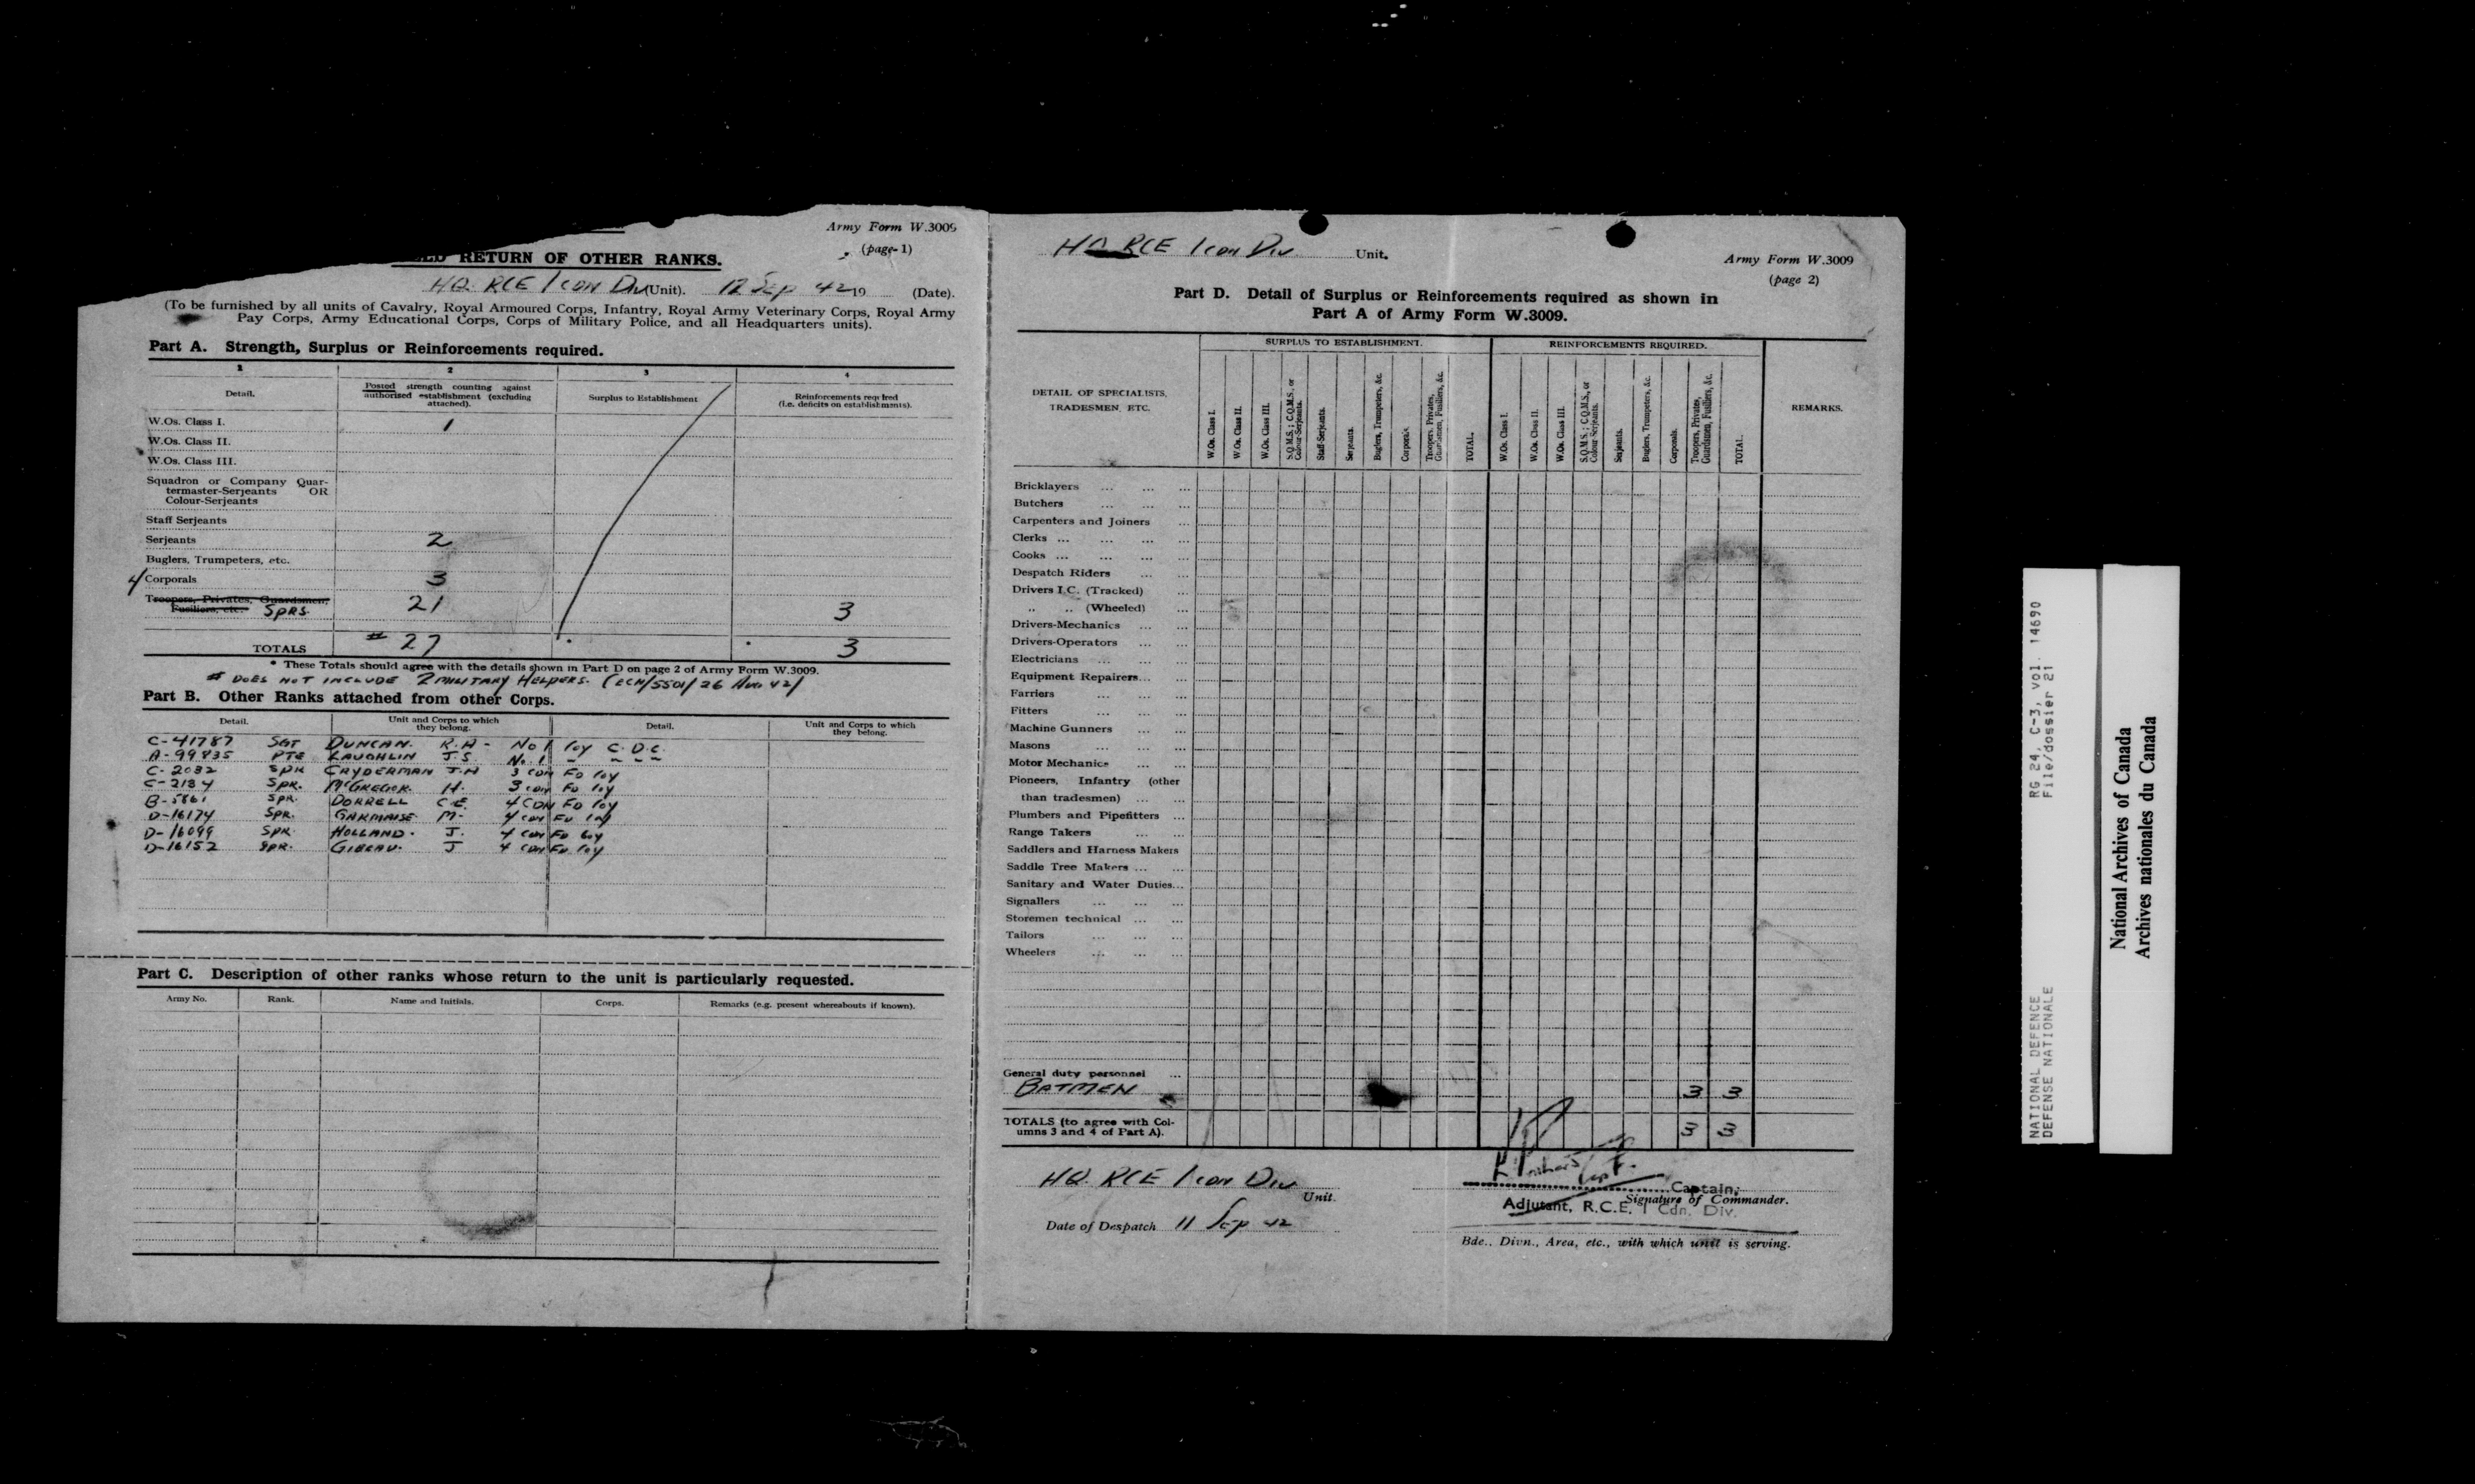 Army Form W.3009
(page 1)
RETURN OF OTHER RANKS.
HQ. RCE 1 CDN DIV (Unit). 12 Sep 42 19 (Date).
(To be furnished by all units of Cavalry, Royal Armoured Corps, Infantry, Royal Army Veterinary Corps, Royal Army
Pay Corps, Army Educational Corps, Corps of Military Police, and all Headquarters units).
Part A. Strength, Surplus or Reinforcements required.
1 2 3 4
Detail.
Posted strength counting against
authorised establishment (excluding
attached).
Surplus to Establishment
Reinforcements required
(i.e. deficits on establishments).
W.Os. Class I. 1
W.Os. Class II.
W.Os. Class III.
Squadron or Company Quar-
termaster-Serjeants OR
Colour-Serjeants
Staff Serjeants
Serjeants 2
Buglers, Trumpeters, etc.
4/ Corporals 3
Troopers, Privates, Guardsmen,
Fusiliers, etc. SPRS. 21 3
TOTALS # 27 3
* These Totals should agree with the details shown in Part D on page 2 of Army Form W.3009.
# DOES NOT INCLUDE 2 MILITARY HELPERS. (ECM/5501/26 AUG 42/
Part B. Other Ranks attached from other Corps.
Detail.
Unit and Corps to which
they belong.
Detail.
Unit and Corps to which
they belong.
C-41787 SGT DUNCAN. R.A - No 1 Coy C.D.C.
A-99835 PTE LAUGHLIN J.S. No. 1 ~ ~ ~ ~
C-2032 SPR CRYDERMAN J.H 3 CDN FD Coy
C-2184 SPR. McGREGOR. H. 3 CDN FD Coy
B-5861 SPR. DORRELL C.E. 4 CDN FD Coy
D-16174 SPR. GARMAISE M. 4 CDN FD Coy
D-16099 SPR. HOLLAND. J. 4 CDN FD Coy
D-16152 SPR. GIBEAU. J 4 CDN FD Coy
Part C. Description of other ranks whose return to the unit is particularly requested.
Army No. Rank. Name and Initials. Corps. Remarks (e.g. present whereabouts if known).
HQ RCE 1 CDN DIV. Unit.
Army Form W.3009
(page 2)
Part D. Detail of Surplus or Reinforcements required as shown in
Part A of Army Form W.3009.
DETAIL OF SPECIALISTS,
TRADESMEN, ETC.
SURPLUS TO ESTABLISHMENT.
W.Os. Class I.
W.Os. Class II.
W.Os. Class III.
S.Q.M.S.; C.Q.M.S., or
Colour-Serjeants.
Staff-Serjeants.
Serjeants.
Buglers, Trumpeters, &c.
Corporals.
Troopers, Privates,
Guardsmen, Fusiliers, &c.
TOTAL.
REINFORCEMENTS REQUIRED.
W.Os. Class I.
W.Os. Class II.
W.Os. Class III.
S.Q.M.S.; C.Q.M.S., or
Colour Serjeants.
Serjeants.
Buglers, Trumpeters, &c.
Corporals.
Troopers, Privates,
Guardsmen, Fusiliers, &c.
TOTAL.
REMARKS.
Bricklayers ... ... ...
Butchers ... ... ...
Carpenters and Joiners ...
Clerks ... ... ... ...
Cooks ... ... ... ...
Despatch Riders ... ...
Drivers I.C. (Tracked) ...
,, ,, (Wheeled) ...
Drivers-Mechanics ... ...
Drivers-Operators ... ...
Electricians ... ... ...
Equipment Repairers... ...
Farriers ... ... ...
Fitters ... ... ...
Machine Gunners ... ...
Masons ... ... ...
Motor Mechanics ... ...
Pioneers, Infantry (other
than tradesmen) ... ...
Plumbers and Pipefitters ...
Range Takers ... ...
Saddlers and Harness Makers
Saddle Tree Makers ... ...
Sanitary and Water Duties...
Signallers ... ... ...
Storemen technical ... ...
Tailors ... ... ...
Wheelers ... ... ...
General duty personnel ...
BATMEN 3 3
TOTALS (to agree with Col-
umns 3 and 4 of Part A). 3 3
HQ. RCE 1 CDN DIV
Unit.
Date of Despatch 11 Sep 42
Captain,
Signature of Commander.
Adjutant, R.C.E. 1 Cdn. Div.
Bde., Divn., Area, etc., with which unit is serving.
NATIONAL DEFENCE RG 24, C-3, vol. 14690
DEFENSE NATIONALE File/dossier 21
National Archives of Canada
Archives nationales du Canada